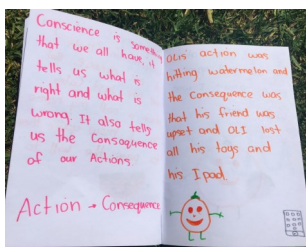 Conscience is something
that we all have, it
tells us what is
right and what is
wrong. It also tells
us the Consoquence
of our Actions
Action → Consequence
OLIs' action was
hitting watermelon and
the consequence was
that his friend was
upset and OLI lost
all his toys and
his Ipad